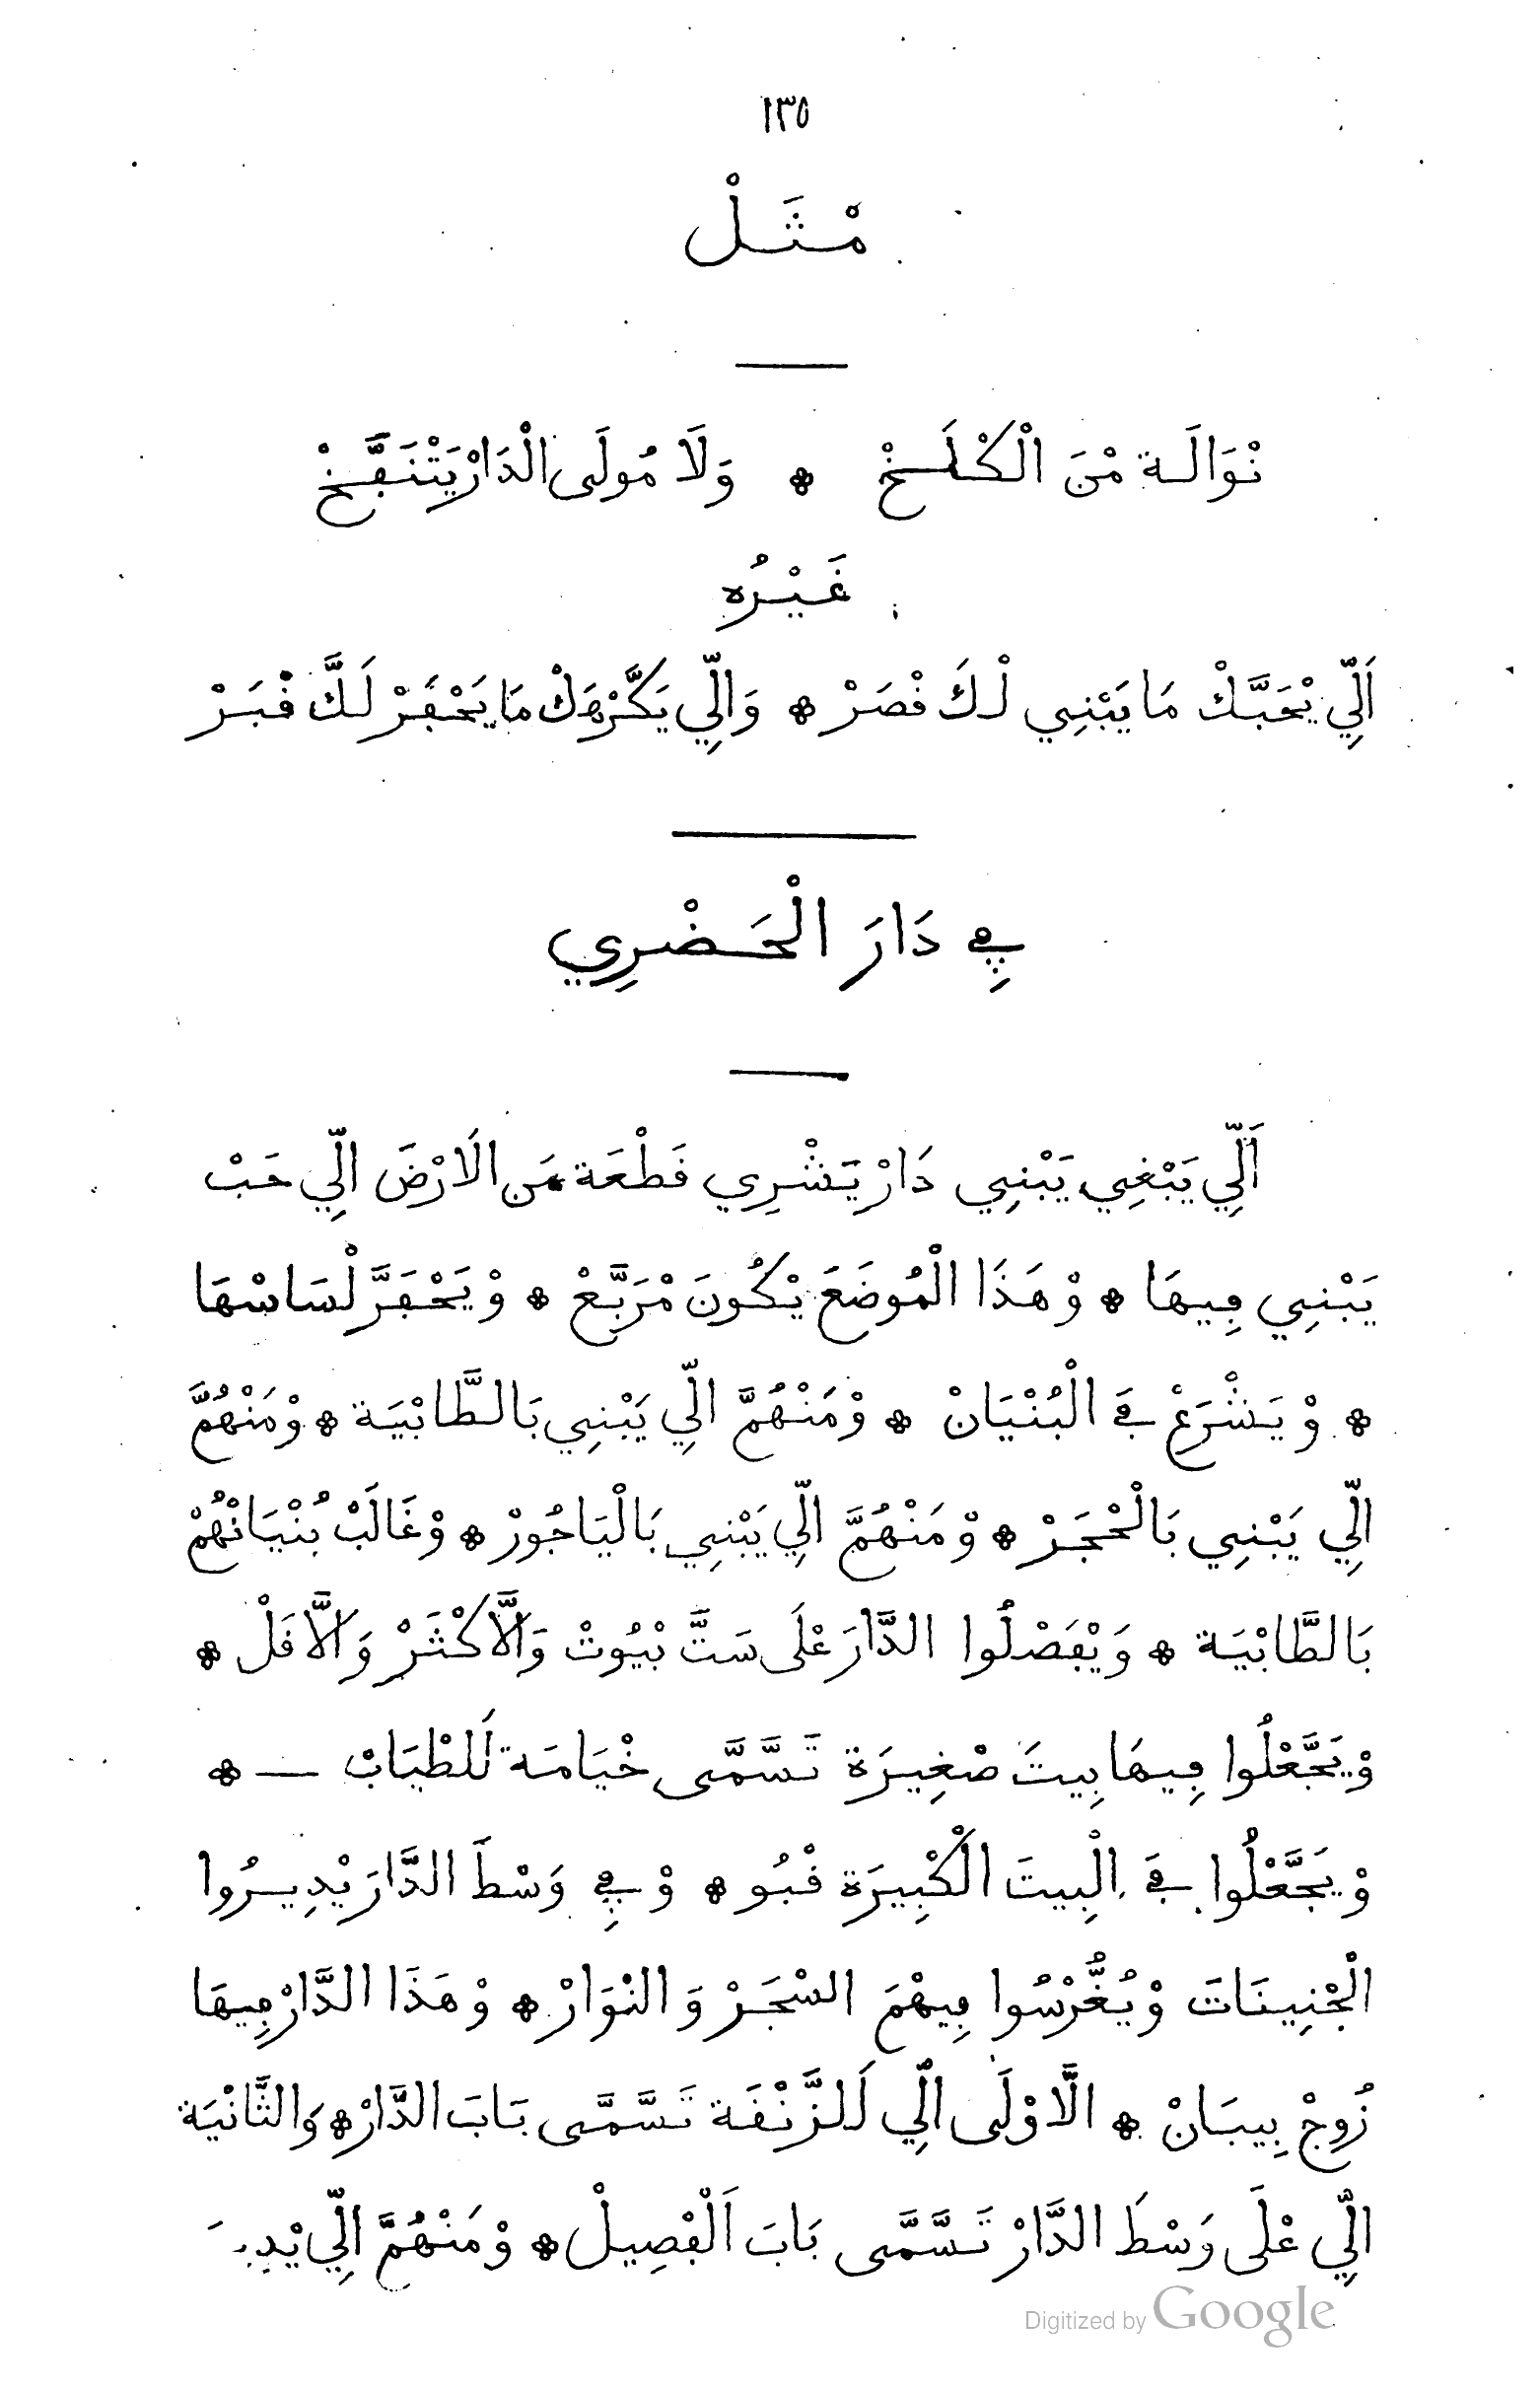 ١٣٥
مْـثَـلْ
نْوَالَـة مْنَ الْكْلَـخْ * وَلَا مُولَى الْدَارْ يَتْنَڢَّـخْ
غَيْـرُه
اَلِّي يْحَبَّـكْ مَا يَبْنِي لْـكَ ڧْصَرْ * وَالِّي يَكَّـرْهَكْ مَا يَحْڢَرْ لَـكَّ ڧْبَـرْ
ڢِي دَارَ الْحَـضْـرِي
اَلِّي يَبْغِي يَبْنِي دَارْ يَشْـرِي ڧَطْعَة مَن الَارْضَ الِّي حَـبْ
يَبْنِي ڢِيـهَا * وْ هَـذَا الْمُوضَعَ يْـكُونَ مْرَبَّـعْ * وْ يَحْـڢَـرَّ لْسَاسْهَا
* وْ يَـشْـرَعْ ڢَي الْبُنْيَانْ * وْمَنْهُمَّ الِّي يَبْنِي بَالـطَّابْيَـة * وْمَنْهُمَّ
الِّي يَبْنِي بَالْحْجَـرْ * وْ مَنْهُمَّ الِّي يَبْنِي بَالْيَاجُورْ * وْغَالَبْ بُنْيَانْهُمْ
بَالطَّابْيَـة * وَ يْڢَصْلُوا الدَّارَ عْلَى سَتَّ بْيُوتْ وَالَّاكْثَرْ وَالَّاڧَلْ *
وْيَجَّعْلُوا ڢِيهَا بِيتَ صْغِيـرَة تَـسَّمَّـى خْيَامَـة لَلطْيَابْ — *
وْ يَجَّعْلُوا ڢَي الْبِيتَ الْكْبِيرَة ڧْبُـو * وْ ڢِي وَسْطَ الدَّارَ يْدِيـرُوا
الْجْنِينَاتَ وْيُغَّرْسُوا ڢِيهْمَ السْجَـرْ وَ النْوَارْ * وْ هَذَا الدَّارْ ڢِيهَا
زُوجْ بِيبَـانْ * الَّاوْلَى الِّي لَلـزَّنْـڧَـة تَـسَّمَّـى بَـابَ الدَّارْ * وَالثَّانْيَة
الِّي عْلَى وَسْطَ الدَّارْ تَـسَّمَّـى بَابَ اَلْڢْصِيـلْ * وْ مَنْهُمَّ الِّي
Digitized by Google